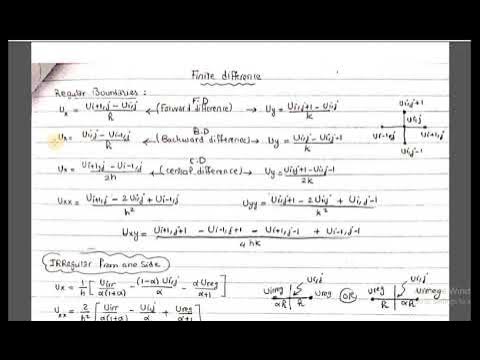 Finite difference
Regular Boundaries :
Ux = (Ui+1,j − Ui,j)/h ← F.D (Forward difference) → Uy = (Ui,j+1 − Ui,j)/k
Ux = (Ui,j − Ui−1,j)/h ← B.D (Backward difference) → Uy = (Ui,j − Ui,j−1)/k
Ux = (Ui+1,j − Ui−1,j)/2h ← C.D (central difference) → Uy = (Ui,j+1 − Ui,j−1)/2k
Ui,j+1
Ui,j
Ui−1,j
Ui,j−1
Uxx = (Ui+1,j − 2Ui,j + Ui−1,j)/h² Uyy = (Ui,j+1 − 2Ui,j + Ui,j−1)/k²
Uxy = (Ui+1,j+1 − Ui−1,j+1 − Ui+1,j−1 + Ui−1,j−1)/4hk
IRRegular From one Side
Ux = 1/h [Uirr/α(1+α) − (1−α)Ui,j/α − αUreg/(α+1)]
Uirreg Ui,j Ureg OR Ureg Ui,j Uirreg
αh h h αh
Uxx = 2/h² [Uirr/α(1+α) − Ui,j/α + Ureg/(α+1)]